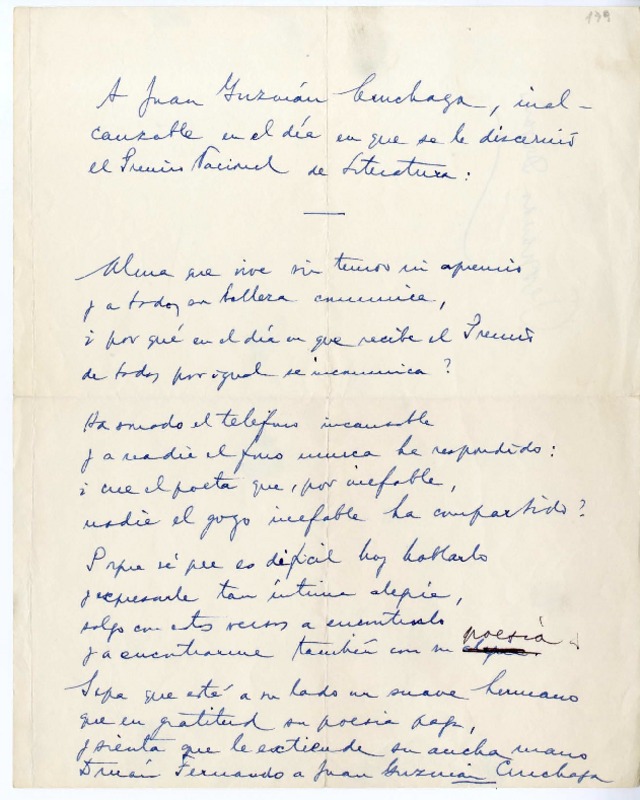 179
A Juan Guzmán Cruchaga, inal-
canzable en el día en que se le discernió
el Premio Nacional de Literatura:
Alma que vive sin temor ni apremio
y a todos su belleza comunica,
¿ por qué en el día en que recibe el Premio
de todos por igual se incomunica?
Ha sonado el teléfono incansable
y a nadie el fono nunca ha respondido:
¿ cree el poeta que, por inefable,
nadie el gozo inefable ha compartido?
Porque sé que es difícil hoy hablarlo
y expresarle tan íntima alegría,
salgo con estos versos a encontrarlo
y a encontrarme también con su poesía
Sepa que esté a su lado un suave hermano
que en gratitud su poesía paga,
y sienta que le extiende su ancha mano
Druán Fernando a Juan Guzmán Cruchaga